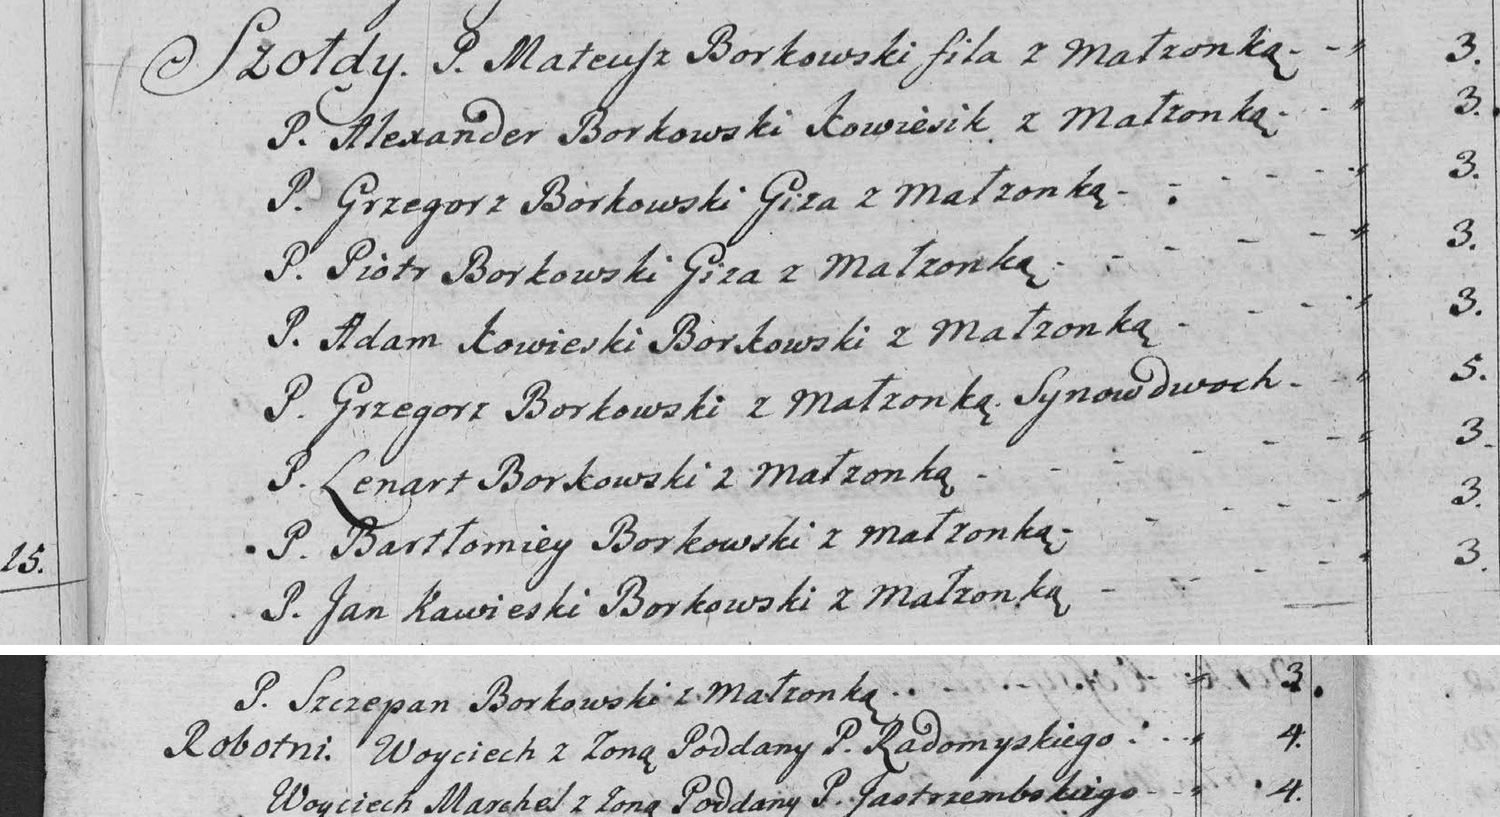 Szołdy. P. Mateusz Borkowski fila z Małzonką - - " 3.
P. Alexander Borkowski Kowiesik z Małzonką - - " 3.
P. Grzegorz Borkowski Giza z Małzonką - - - - - " 3.
P. Piotr Borkowski Giza z Małzonką - - - - - " 3.
P. Adam Kowieski Borkowski z Małzonką - - - " 3.
P. Grzegorz Borkowski z Małzonką Synow dwoch - - " 5.
P. Lenart Borkowski z Małzonką - - - - - - " 3.
P. Bartłomiey Borkowski z Małzonką - - - - " 3.
15.
P. Jan Kawieski Borkowski z Małzonką - - - - " 3.
P. Szczepan Borkowski z Małzonką - - " 3.
Robotni. Woyciech z Zoną Poddany P. Radomyskiego - - " 4.
Woyciech Marchel z Zoną Poddany P. Jastrzembskiego - - " 4.